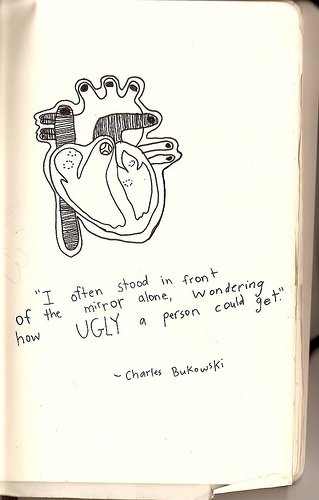 "I often stood in front
of the mirror alone, wondering
how UGLY a person could get."
~ Charles Bukowski